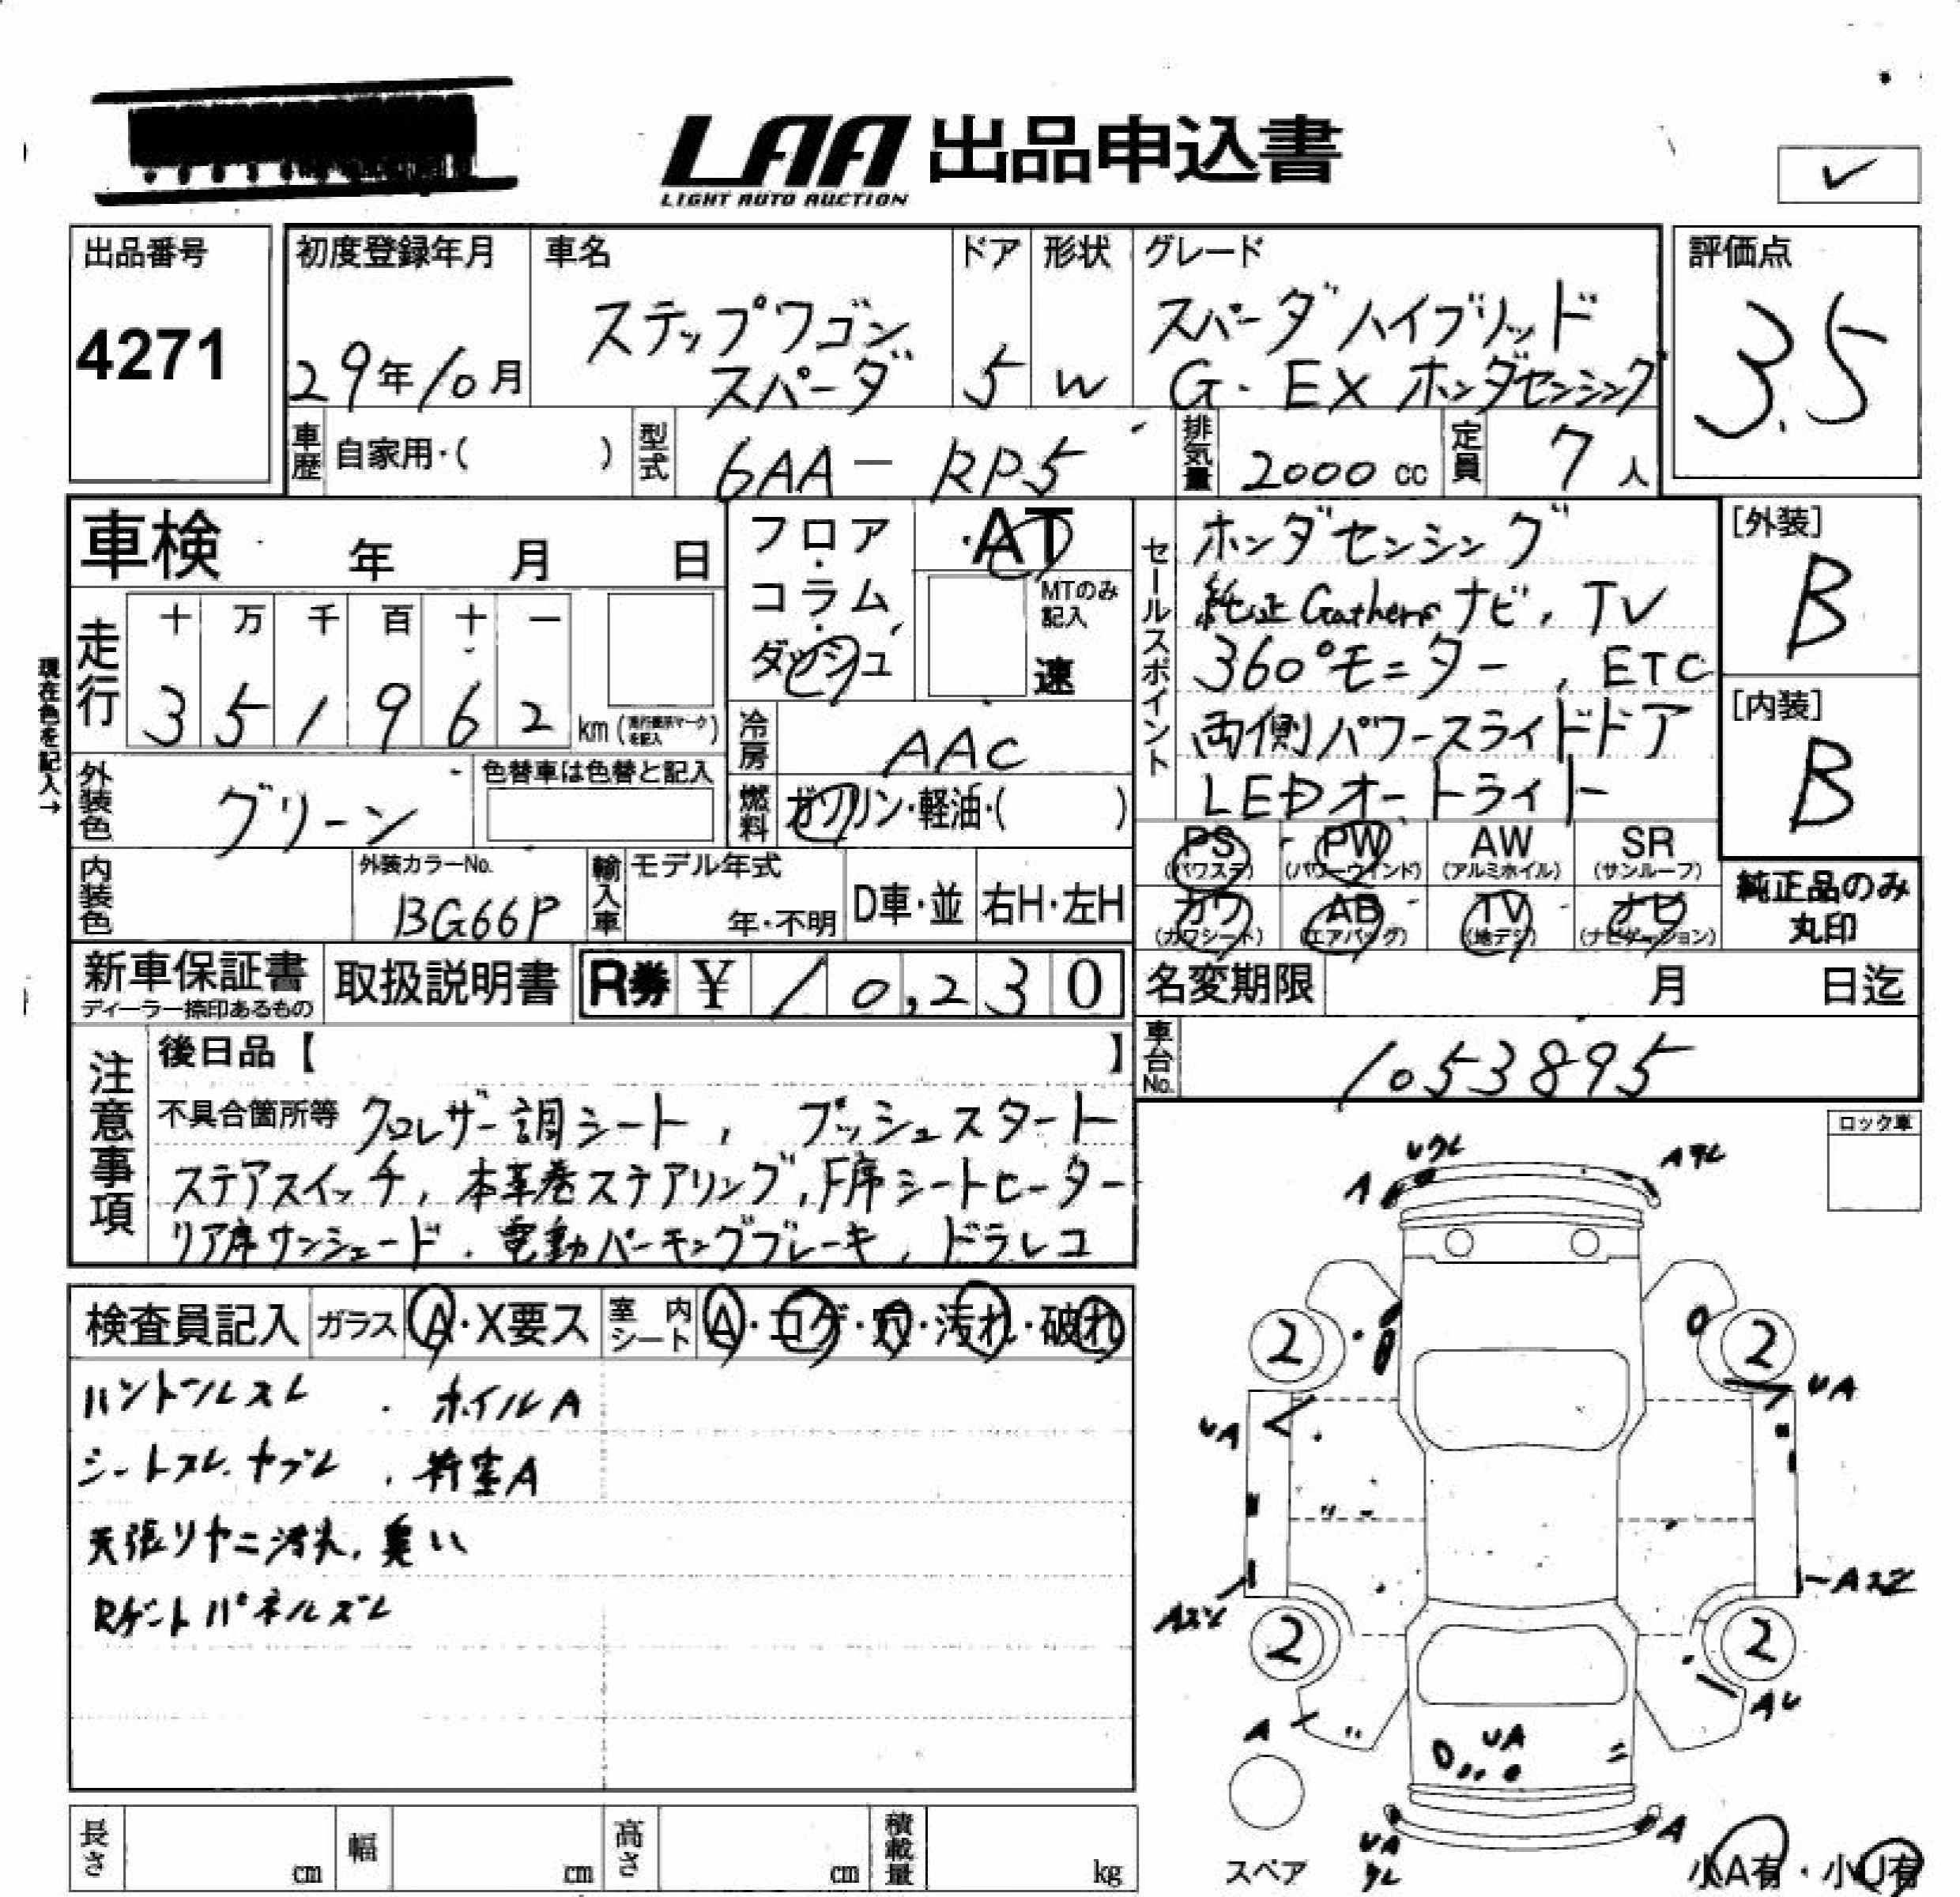 LAA 出品申込書
LIGHT AUTO AUCTION
出品番号
4271
初度登録年月
29年10月
車名
ステップワゴン
スパーダ
ドア
5
形状
W
グレード
スパーダハイブリッド
G・EX ホンダセンシング
評価点
3.5
車歴 自家用・( )
型式 6AA-RP5
排気量 2000 cc
定員 7人
車検 年 月 日
フロア・コラム・ダッシュ
AT
MTのみ記入
速
走行
十 万 千 百 十 一
3 5 1 9 6 2 km
現在色を記入→
冷房 AAC
外装色 グリーン
色替車は色替と記入
燃料 ガソリン・軽油・( )
内装色
外装カラーNo.
BG66P
輸入車
モデル年式
年・不明
D車・並
右H・左H
セールスポイント
ホンダセンシング
純正Gathersナビ、TV
360°モニター、ETC
両側パワースライドドア
LEDオートライト
[外装]
B
[内装]
B
PS (パワステ)
PW (パワーウインド)
AW (アルミホイル)
SR (サンルーフ)
カワ (カワシート)
AB (エアバッグ)
TV (地デジ)
ナビ (ナビゲーション)
純正品のみ
丸印
新車保証書
ディーラー捺印あるもの
取扱説明書
R券 ¥ 10,230
名変期限 月 日迄
車台No. 1053895
注意事項
後日品【 】
不具合箇所等 クロレザー調シート、プッシュスタート
ステアスイッチ、本革巻ステアリング、F席シートヒーター
リア席サンシェード、電動パーキングブレーキ、ドラレコ
ロック車
検査員記入 ガラス A・X要ス 室内シート A・コゲ・穴・汚れ・破れ
ハンドルスレ . ホイルA
シートスレ.ヤブレ . 荷室A
天張りヤニ汚れ.臭い
Rゲートパネルズレ
Uワレ
A
2
2
UA
UA
Aスレ
2
2
AU
A
UA
UA
ワレ
A
スペア
小A有・小U有
長さ cm
幅 cm
高さ cm
積載量 kg